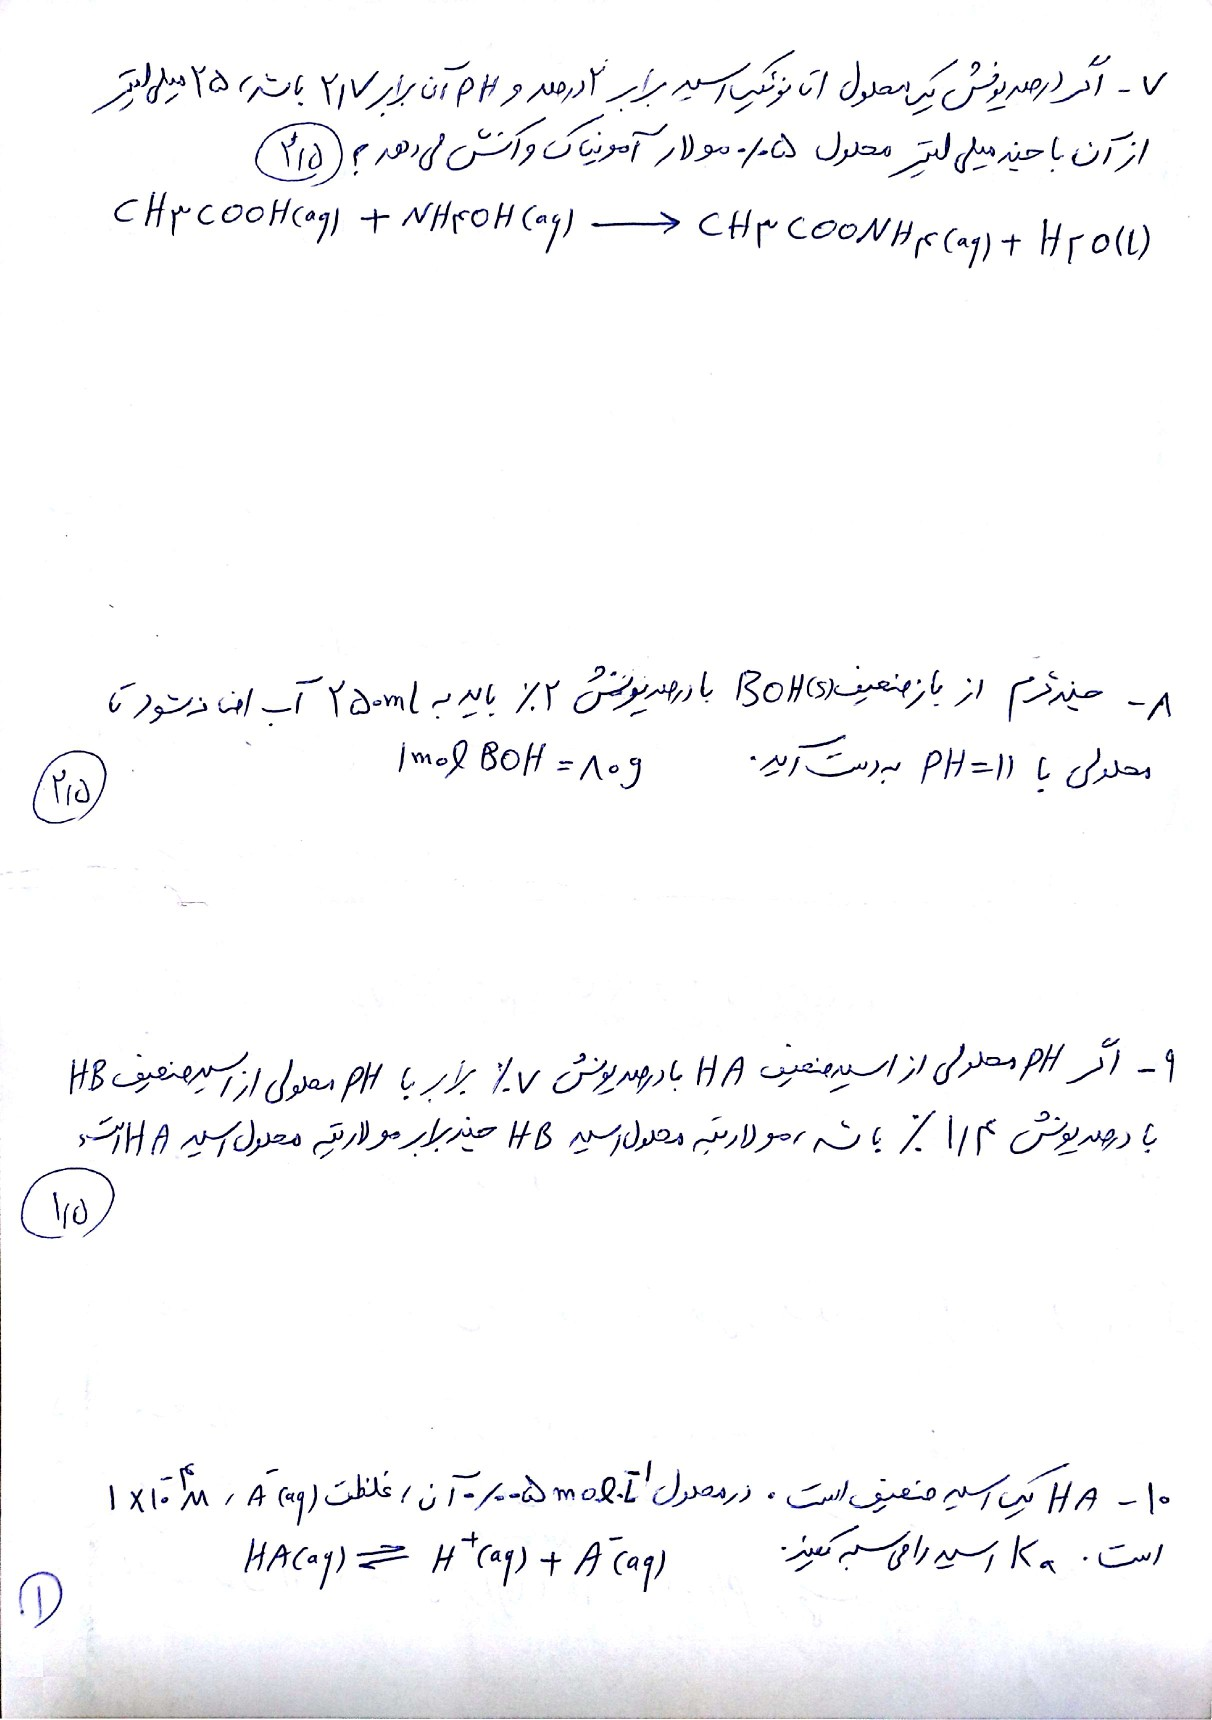 ۷- اگر درصد یونش یک محلول اتانوئیک اسید برابر ۲ درصد و PH آن برابر ۲٫۷ باشد، ۲۵ میلی لیتر
از آن با چند میلی لیتر محلول ۰/۰۵ مولار آمونیاک واکنش می دهد؟ (۲٫۵)
CH۳COOH(aq) + NH۴OH(aq) ⟶ CH۳COONH۴(aq) + H۲O(l)
۸- چند گرم از باز ضعیف BOH(s) با درصد یونش ۲٪ باید به ۲۵۰ml آب اضافه شود تا
محلولی با PH=۱۱ به دست آید. ۱mol BOH = ۸۰g
۲٫۵
۹- اگر PH محلولی از اسید ضعیف HA با درصد یونش ۷٪ برابر با PH محلولی از اسید ضعیف HB
با درصد یونش ۱٫۴٪ باشد، مولاریته محلول اسید HB چند برابر مولاریته محلول اسید HA است؟
۱٫۵
۱۰- HA یک اسید ضعیف است. در محلول ۰/۰۰۵mol.L⁻¹ آن، غلظت A⁻(aq)، ۱×۱۰⁻⁴M
است. Ka اسید را محاسبه کنید. HA(aq) ⇌ H⁺(aq) + A⁻(aq)
۱